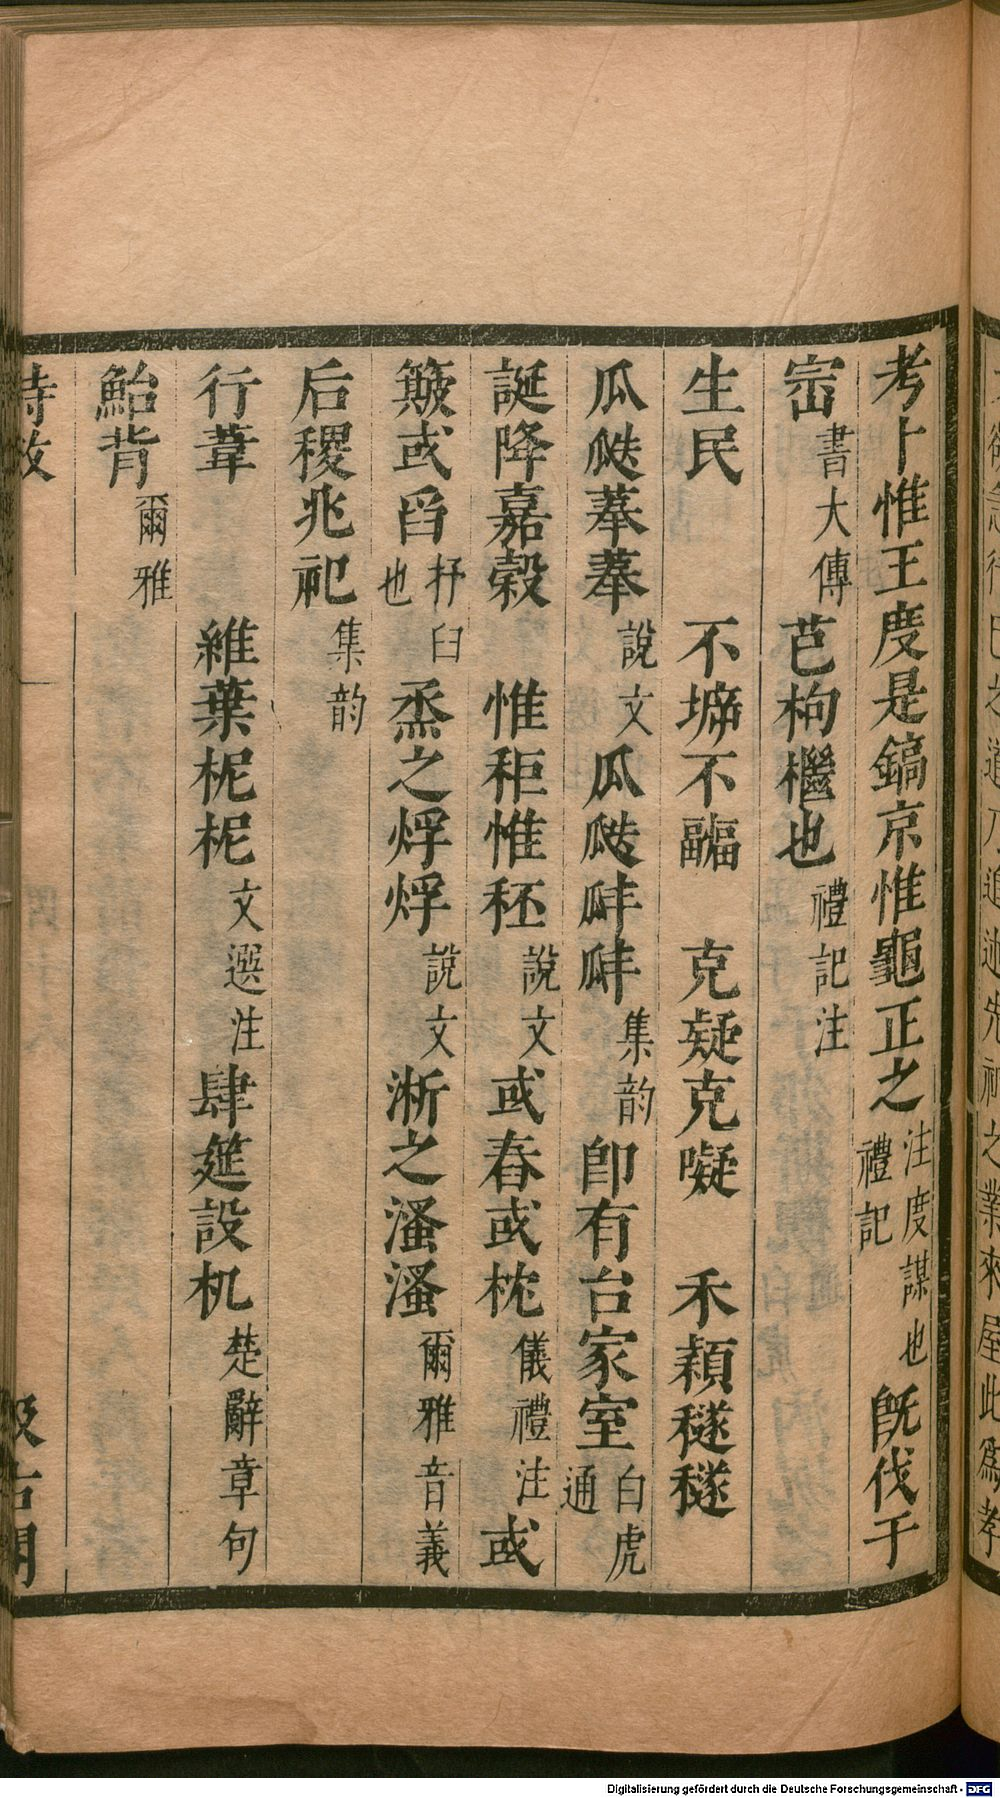 考卜惟王度是鎬京惟龜正之注度謀也禮記旣伐于
崈書大傳芑枸檵也禮記注
生民 不不疈 克疑克㘈 禾穎穟穟
瓜瓞菶菶說文瓜瓞集韵卽有台家室白虎通
誕降嘉穀 惟秬惟秠說文或舂或枕儀禮注或
簸或舀抒臼也烝之烰烰說文淅之溞溞爾雅音義
后稷兆祀集韵
行葦 維葉柅柅文選注肆筵設机楚辭章句
鮐背爾雅
詩攷 汲古閣
Digitalisierung gefördert durch die Deutsche Forschungsgemeinschaft - DFG